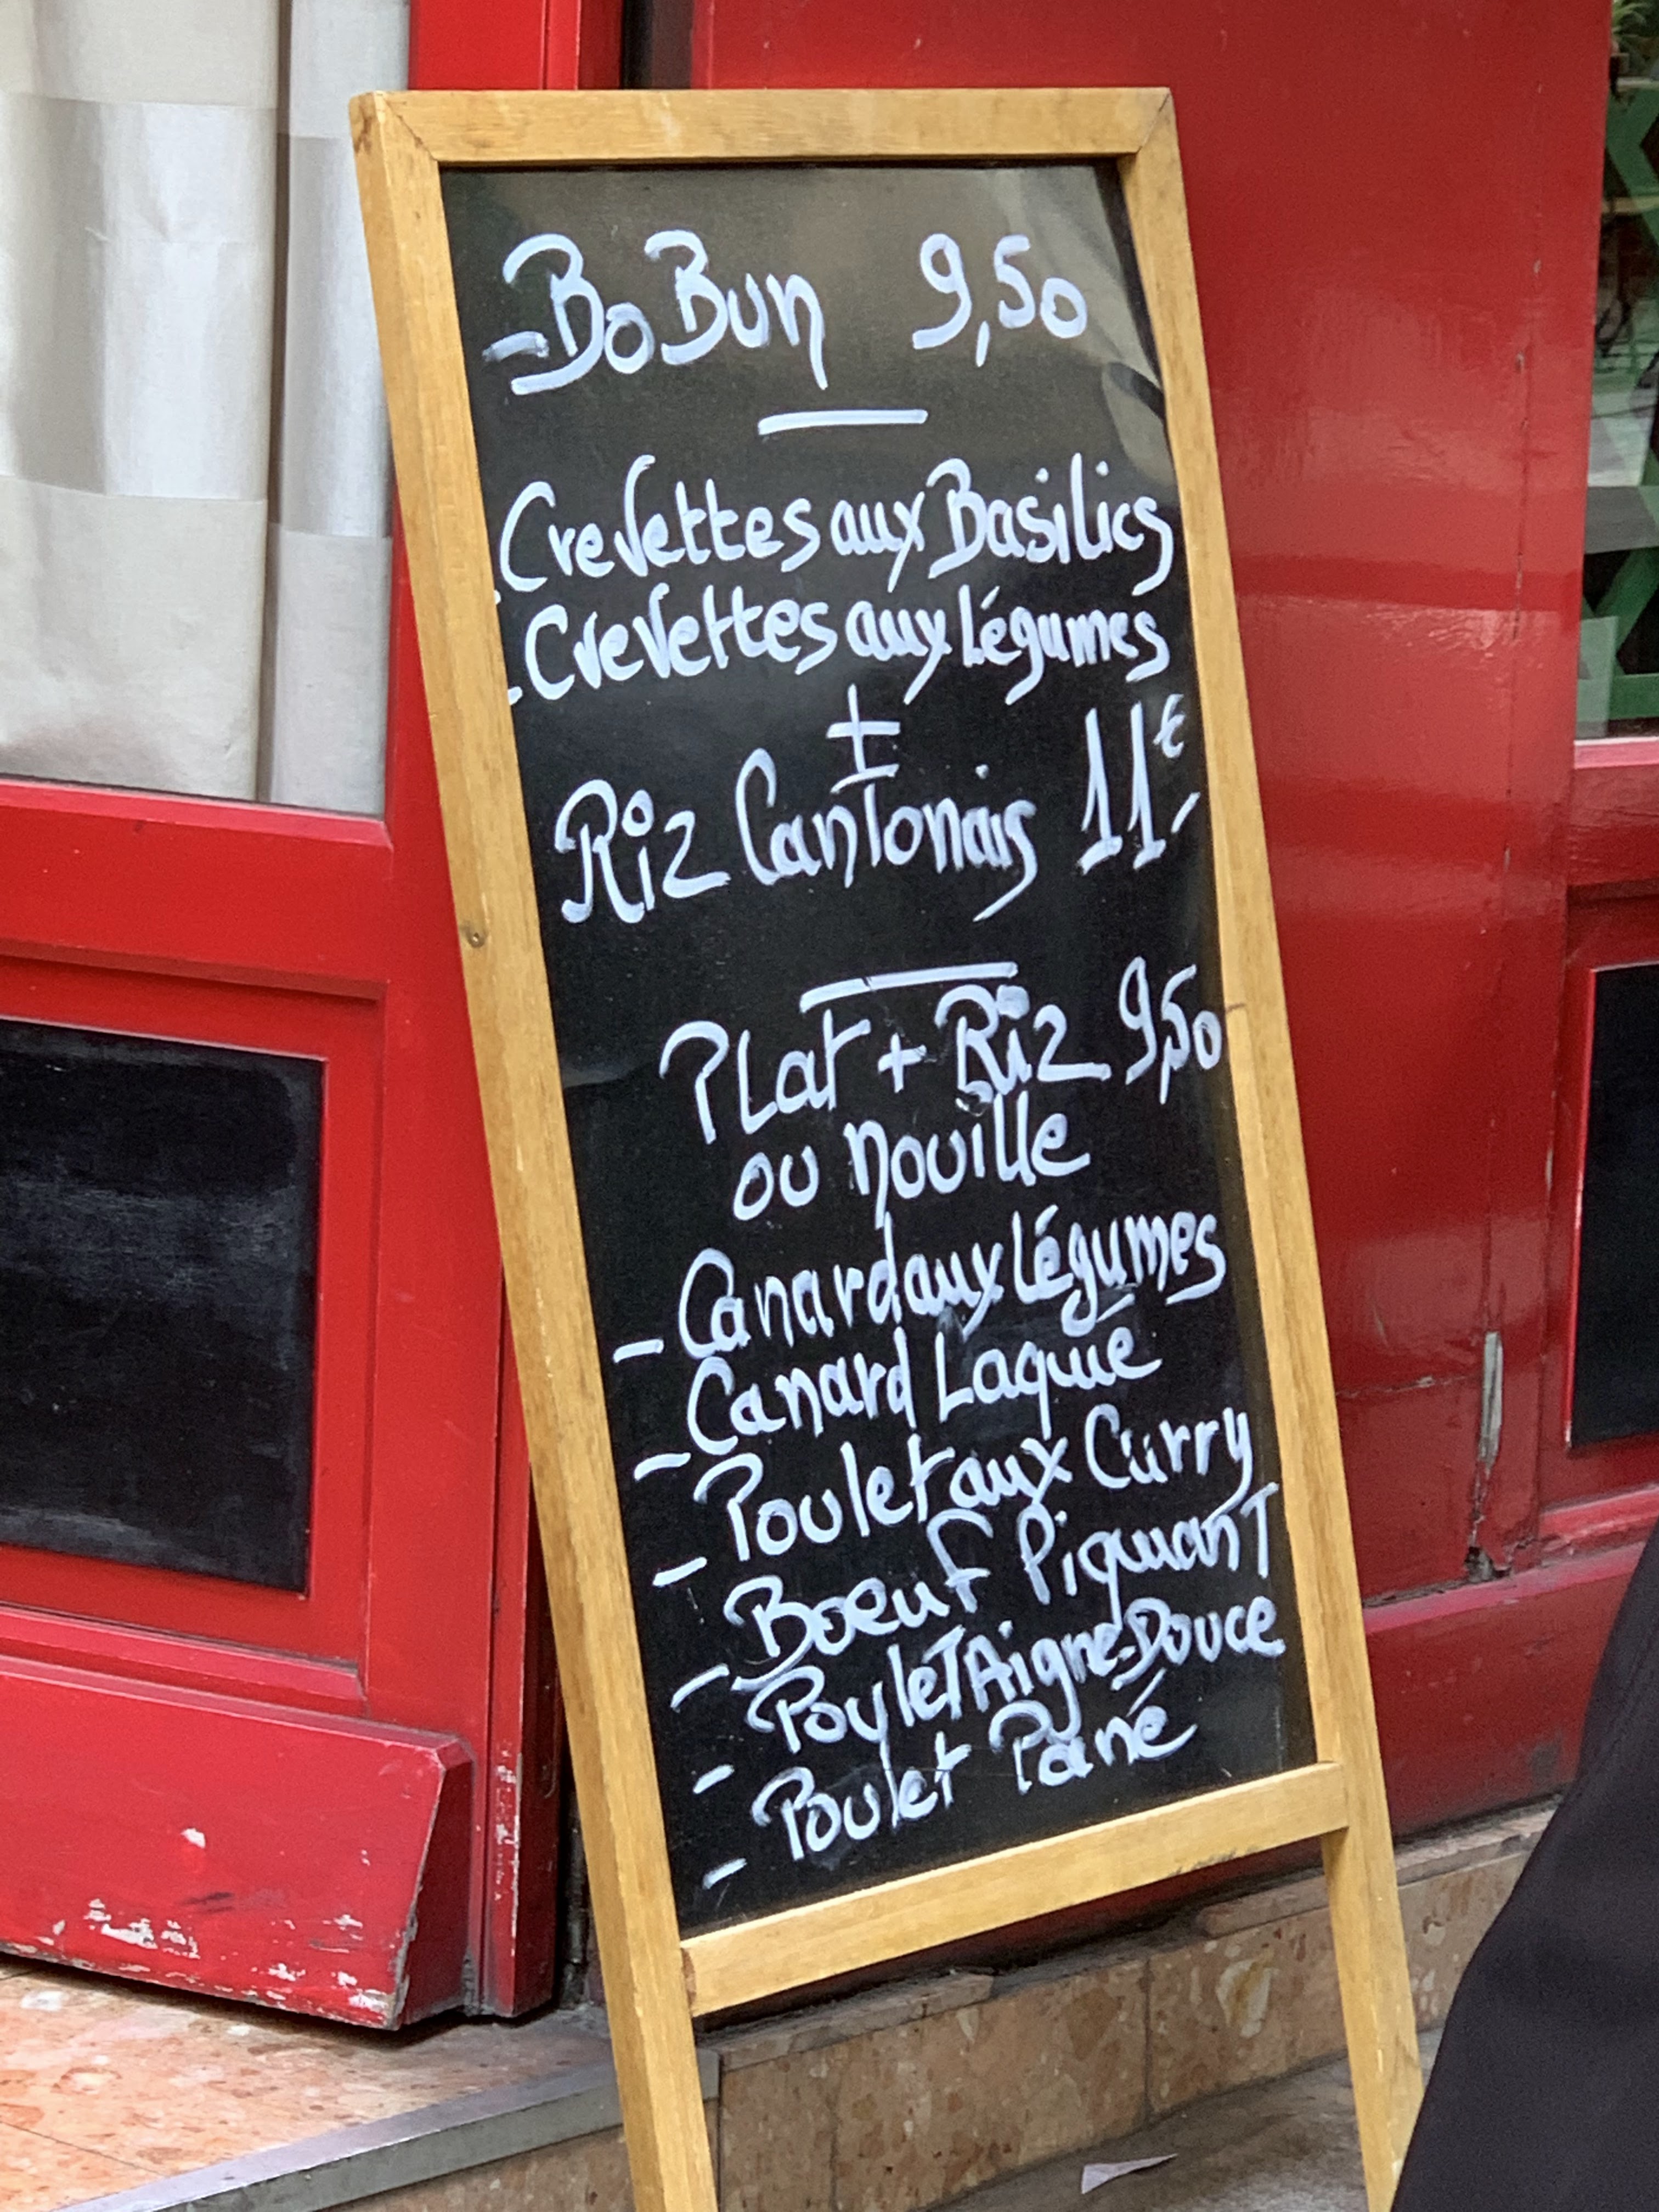 - Bo Bun 9,50
- Crevettes aux Basilics
- Crevettes aux légumes
+
Riz Cantonais 11€,-
Plat + Riz 9,50
ou nouille
- Canard aux légumes
- Canard Laqué
- Poulet aux Curry
- Boeuf Piquant
- Poulet Aigre-Douce
- Poulet Pané